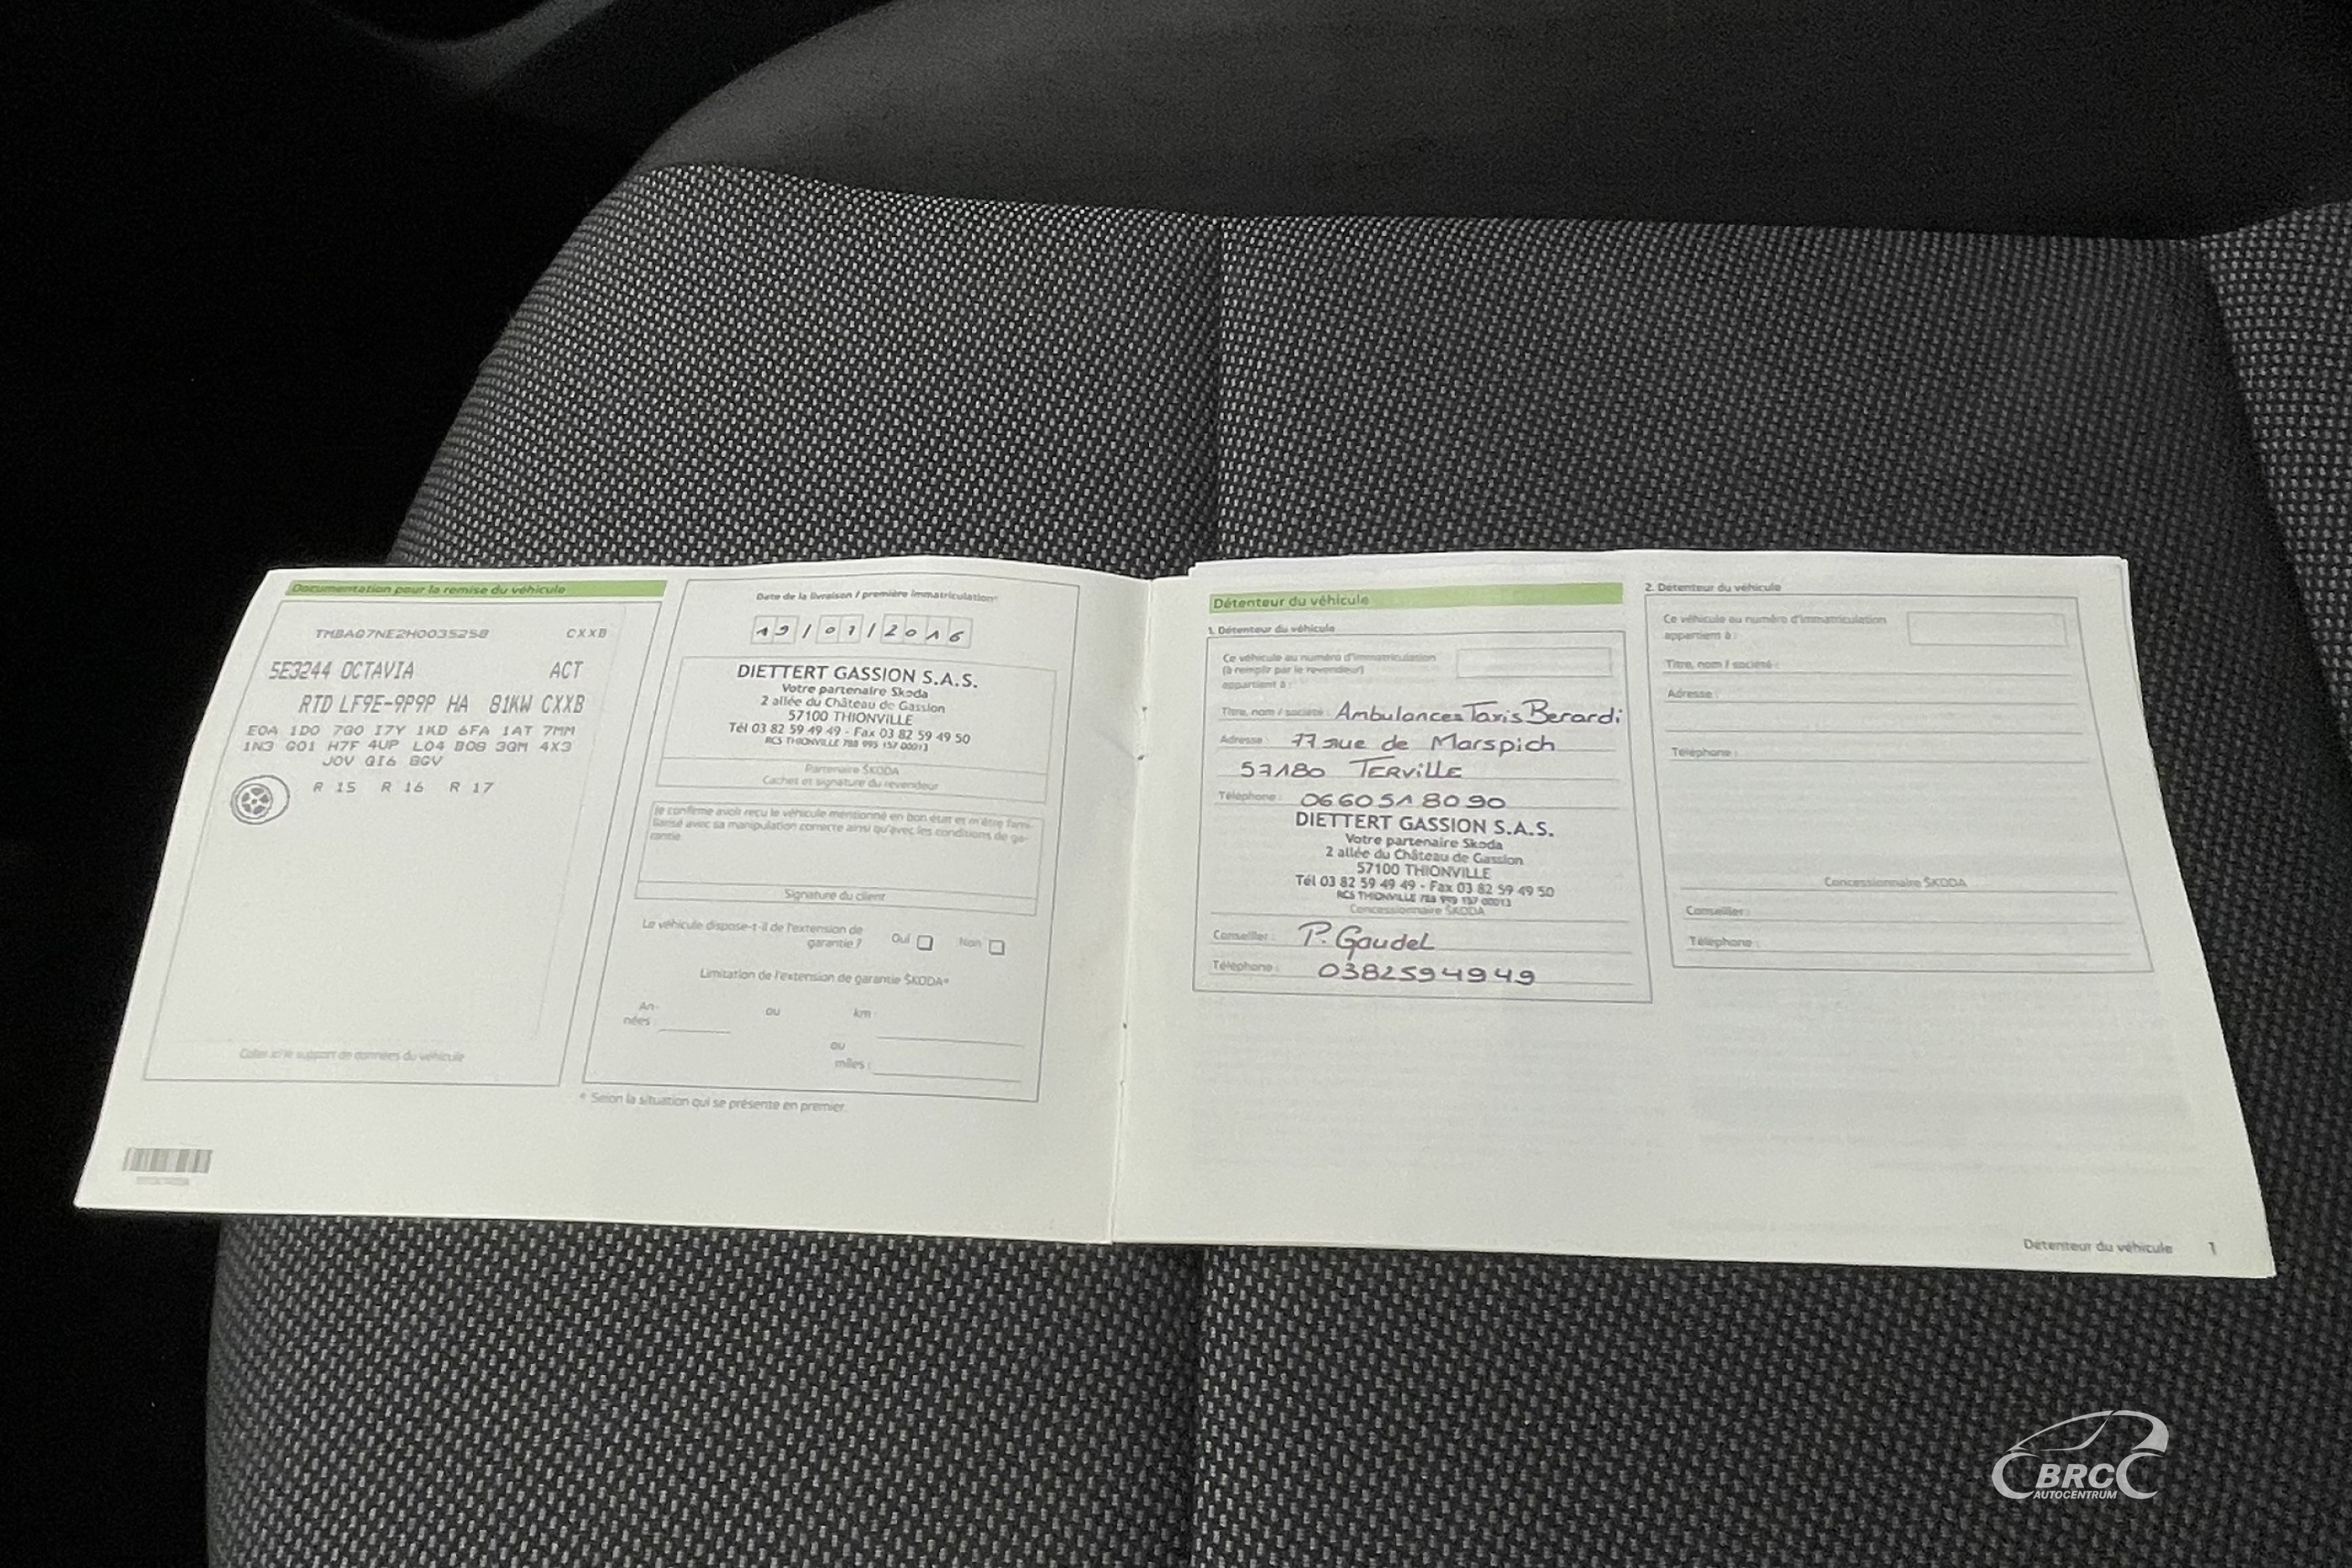 Documentation pour la remise du véhicule
TMBAG7NE2H0035258 CXXB
5E3244 OCTAVIA ACT
RTD LF9E-9P9P HA 81KW CXXB
E0A 1D0 7G0 I7Y 1KD 6FA 1AT 7MM
1N3 G01 H7F 4UP L04 B08 3GM 4X3
J0V QI6 8GV
R 15 R 16 R 17
Coller ici le support de données du véhicule
Date de la livraison / première immatriculation*
19/07/2016
DIETTERT GASSION S.A.S.
Votre partenaire Skoda
2 allée du Château de Gassion
57100 THIONVILLE
Tél 03 82 59 49 49 - Fax 03 82 59 49 50
RCS THIONVILLE 788 993 137 00013
Partenaire ŠKODA
Cachet et signature du revendeur
Je confirme avoir reçu le véhicule mentionné en bon état et m'être fami-
liarisé avec sa manipulation correcte ainsi qu'avec les conditions de ga-
rantie.
Signature du client
Le véhicule dispose-t-il de l'extension de
garantie ? Oui Non
Limitation de l'extension de garantie ŠKODA*
An-
nées ou km :
ou
miles :
* Selon la situation qui se présente en premier.
Détenteur du véhicule
1. Détenteur du véhicule
Ce véhicule au numéro d'immatriculation
(à remplir par le revendeur)
appartient à :
Titre, nom / société : Ambulances Taxis Berardi
Adresse : 77 rue de Marspich
57180 TERVILLE
Téléphone : 0660518090
DIETTERT GASSION S.A.S.
Votre partenaire Skoda
2 allée du Château de Gassion
57100 THIONVILLE
Tél 03 82 59 49 49 - Fax 03 82 59 49 50
RCS THIONVILLE 788 993 137 00013
Concessionnaire ŠKODA
Conseiller : P. Gaudel
Téléphone : 0382594949
2. Détenteur du véhicule
Ce véhicule au numéro d'immatriculation
appartient à :
Titre, nom / société :
Adresse :
Téléphone :
Concessionnaire ŠKODA
Conseiller :
Téléphone :
Détenteur du véhicule 1
BRC
AUTOCENTRUM